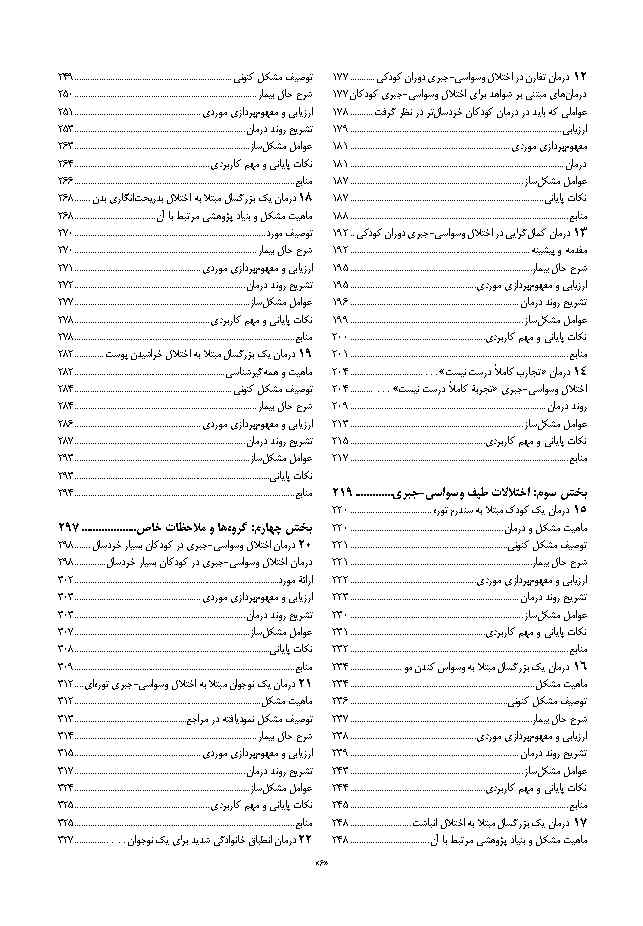 ۱۲ درمان تقارن در اختلال وسواسی-جبری دوران کودکی ........... ۱۷۷
درمان‌های مبتنی بر شواهد برای اختلال وسواسی-جبری کودکان ۱۷۷
عواملی که باید در درمان کودکان خردسال‌تر در نظر گرفت .......... ۱۷۸
ارزیابی .......... ۱۷۹
مفهوم‌پردازی موردی .......... ۱۸۱
درمان .......... ۱۸۱
عوامل مشکل‌ساز .......... ۱۸۷
نکات پایانی .......... ۱۸۷
منابع .......... ۱۸۸
۱۳ درمان کمال‌گرایی در اختلال وسواسی-جبری دوران کودکی .. ۱۹۲
مقدمه و پیشینه .......... ۱۹۲
شرح حال بیمار .......... ۱۹۵
ارزیابی و مفهوم‌پردازی موردی .......... ۱۹۵
تشریح روند درمان .......... ۱۹۶
عوامل مشکل‌ساز .......... ۱۹۹
نکات پایانی و مهم کاربردی .......... ۲۰۰
منابع .......... ۲۰۱
۱۴ درمان «تجارب کاملاً درست نیست»... .......... ۲۰۴
اختلال وسواسی-جبری «تجربهٔ کاملاً درست نیست» ... .......... ۲۰۴
روند درمان .......... ۲۰۹
عوامل مشکل‌ساز .......... ۲۱۳
نکات پایانی و مهم کاربردی .......... ۲۱۵
منابع .......... ۲۱۷
بخش سوم: اختلالات طیف وسواسی-جبری ............ ۲۱۹
۱۵ درمان یک کودک مبتلا به سندرم توره .......... ۲۲۰
ماهیت مشکل و درمان .......... ۲۲۰
توصیف مشکل کنونی .......... ۲۲۱
شرح حال بیمار .......... ۲۲۱
ارزیابی و مفهوم‌پردازی موردی .......... ۲۲۲
تشریح روند درمان .......... ۲۲۳
عوامل مشکل‌ساز .......... ۲۳۰
نکات پایانی و مهم کاربردی .......... ۲۳۱
منابع .......... ۲۳۲
۱۶ درمان یک بزرگسال مبتلا به وسواس کندن مو .......... ۲۳۴
ماهیت مشکل .......... ۲۳۴
توصیف مشکل کنونی .......... ۲۳۶
شرح حال بیمار .......... ۲۳۷
ارزیابی و مفهوم‌پردازی موردی .......... ۲۳۸
تشریح روند درمان .......... ۲۳۹
عوامل مشکل‌ساز .......... ۲۴۳
نکات پایانی و مهم کاربردی .......... ۲۴۴
منابع .......... ۲۴۵
۱۷ درمان یک بزرگسال مبتلا به اختلال انباشت .......... ۲۴۸
ماهیت مشکل و بنیاد پژوهشی مرتبط با آن .......... ۲۴۸
توصیف مشکل کنونی .......... ۲۴۹
شرح حال بیمار .......... ۲۵۰
ارزیابی و مفهوم‌پردازی موردی .......... ۲۵۱
تشریح روند درمان .......... ۲۵۳
عوامل مشکل‌ساز .......... ۲۶۳
نکات پایانی و مهم کاربردی .......... ۲۶۴
منابع .......... ۲۶۶
۱۸ درمان یک بزرگسال مبتلا به اختلال بدریخت‌انگاری بدن ...... ۲۶۸
ماهیت مشکل و بنیاد پژوهشی مرتبط با آن .......... ۲۶۸
توصیف مورد .......... ۲۷۰
شرح حال بیمار .......... ۲۷۰
ارزیابی و مفهوم‌پردازی موردی .......... ۲۷۱
تشریح روند درمان .......... ۲۷۲
عوامل مشکل‌ساز .......... ۲۷۷
نکات پایانی و مهم کاربردی .......... ۲۷۸
منابع .......... ۲۷۸
۱۹ درمان یک بزرگسال مبتلا به اختلال خراشیدن پوست .......... ۲۸۲
ماهیت و همه‌گیرشناسی .......... ۲۸۲
توصیف مشکل کنونی .......... ۲۸۴
شرح حال بیمار .......... ۲۸۴
ارزیابی و مفهوم‌پردازی موردی .......... ۲۸۶
تشریح روند درمان .......... ۲۸۷
عوامل مشکل‌ساز .......... ۲۹۳
نکات پایانی .......... ۲۹۳
منابع .......... ۲۹۴
بخش چهارم: گروه‌ها و ملاحظات خاص ................... ۲۹۷
۲۰ درمان اختلال وسواسی-جبری در کودکان بسیار خردسال ...... ۲۹۸
درمان اختلال وسواسی-جبری در کودکان بسیار خردسال .......... ۲۹۸
ارائهٔ مورد .......... ۳۰۲
ارزیابی و مفهوم‌پردازی موردی .......... ۳۰۳
تشریح روند درمان .......... ۳۰۳
عوامل مشکل‌ساز .......... ۳۰۷
نکات پایانی .......... ۳۰۸
منابع .......... ۳۰۹
۲۱ درمان یک نوجوان مبتلا به اختلال وسواسی-جبری توره‌ای .... ۳۱۲
ماهیت مشکل .......... ۳۱۲
توصیف مشکل نمودیافته در مراجع .......... ۳۱۳
شرح حال بیمار .......... ۳۱۴
ارزیابی و مفهوم‌پردازی موردی .......... ۳۱۵
تشریح روند درمان .......... ۳۱۷
عوامل مشکل‌ساز .......... ۳۲۴
نکات پایانی و مهم کاربردی .......... ۳۲۵
منابع .......... ۳۲۵
۲۲ درمان انطباق خانوادگی شدید برای یک نوجوان ... .......... ۳۲۷
«۶»